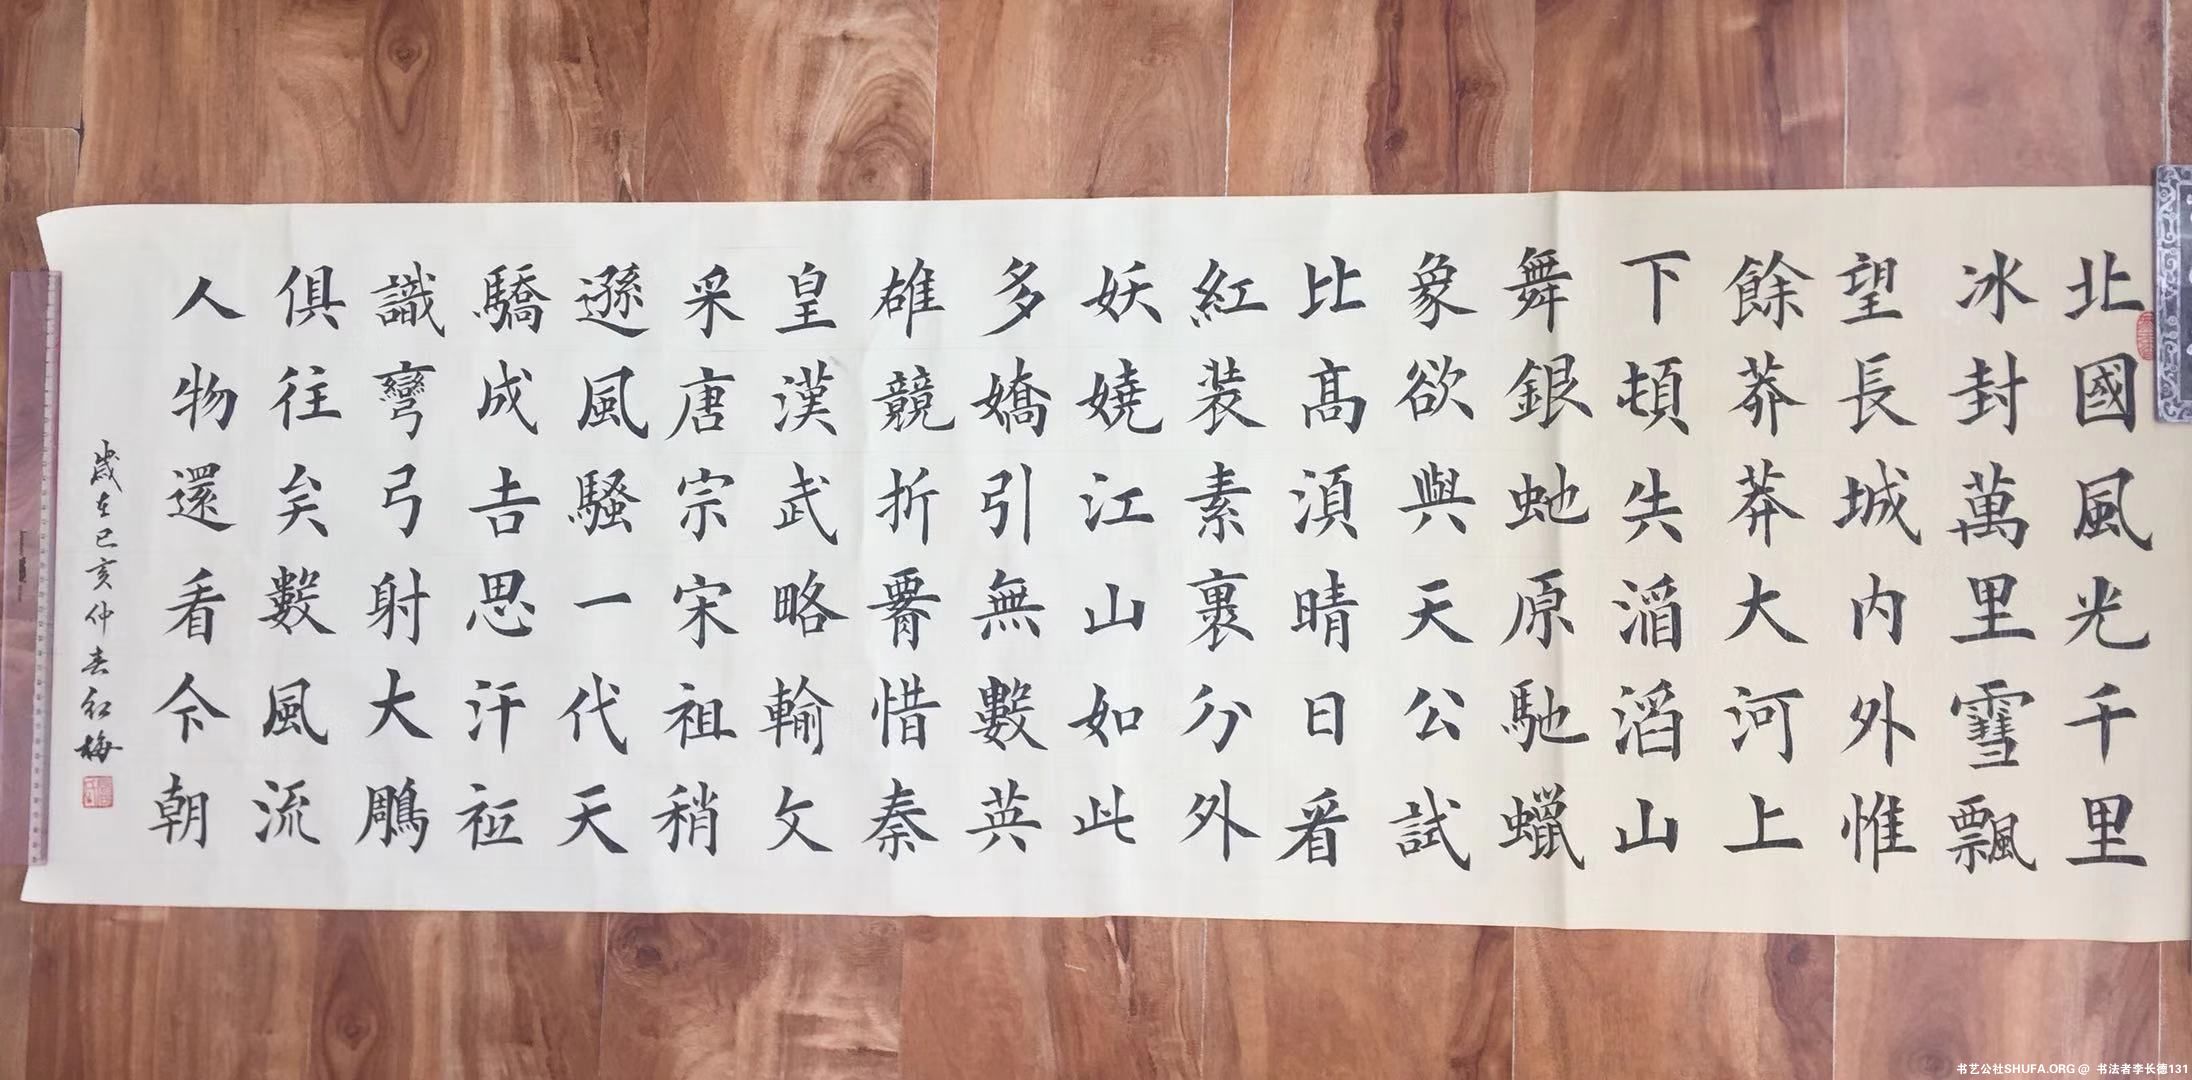 北國風光千里
冰封萬里雪飄
望長城内外惟
餘莽莽大河上
下頓失滔滔山
舞銀虵原馳蠟
象欲與天公試
比髙湏晴日看
紅装素裹分外
妖嬈江山如此
多嬌引無數英
雄競折惜秦
皇漢武略輸文
采唐宗宋祖稍
遜風騷一代天
驕成吉思汗袛
識彎弓射大鵰
俱往矣數風流
人物還看今朝
歲在己亥仲春紅梅
书艺公社SHUFA.ORG @ 书法者李长德131